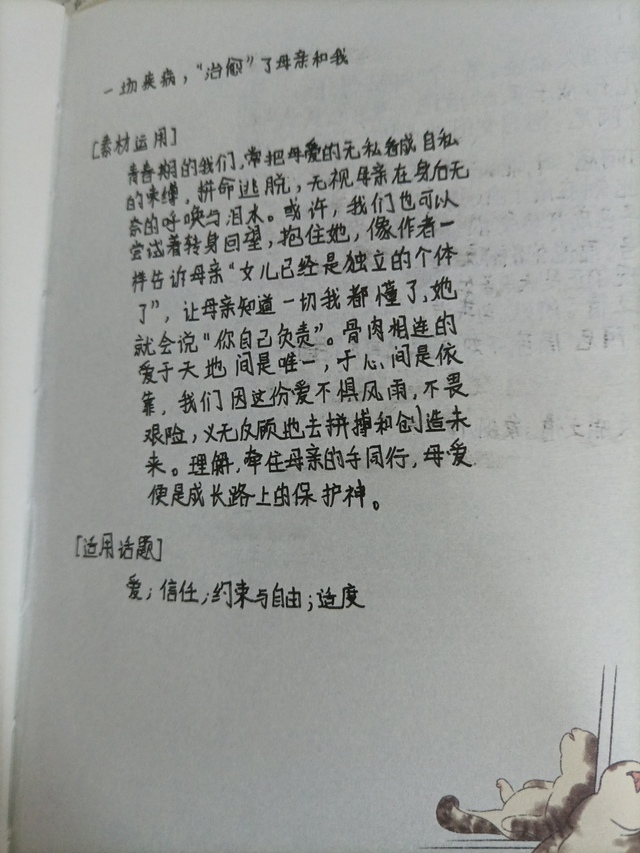 一场疾病，“治愈”了母亲和我
[素材运用]
青春期的我们，常把母爱的无私看成自私
的束缚，拼命逃脱，无视母亲在身后无
奈的呼唤与泪水。或许，我们也可以
尝试着转身回望，抱住她，像作者一
样告诉母亲“女儿已经是独立的个体
了”，让母亲知道一切我都懂了，她
就会说“你自己负责”。骨肉相连的
爱于天地间是唯一，于心间是依
靠，我们因这份爱不惧风雨，不畏
艰险，义无反顾地去拼搏和创造未
来。理解，牵住母亲的手同行，母爱
便是成长路上的保护神。
[适用话题]
爱；信任；约束与自由；适度